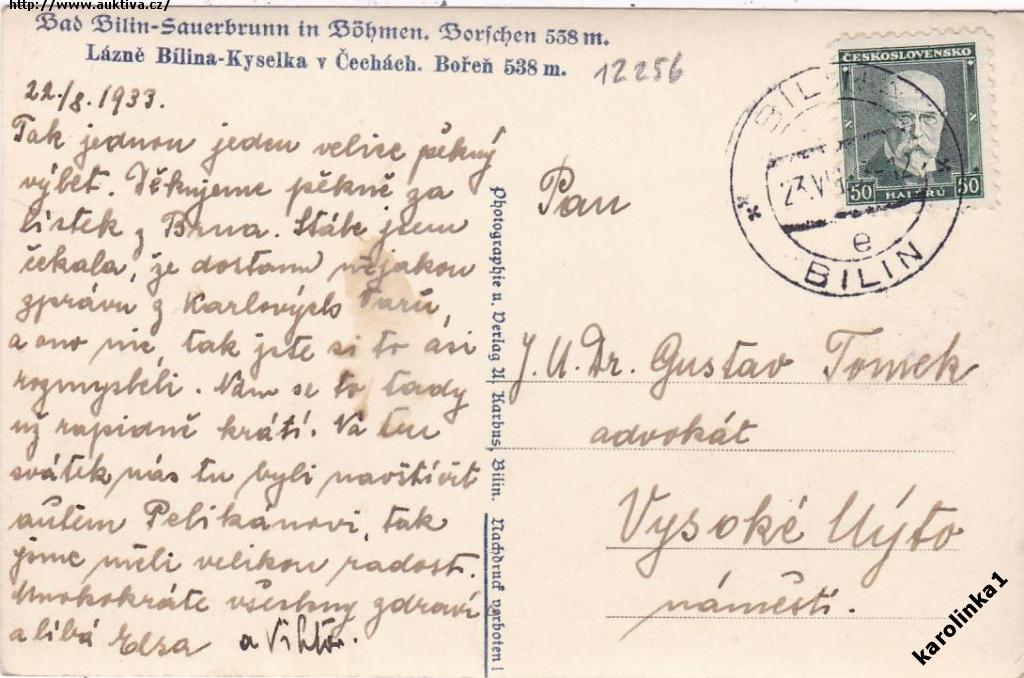 http://www.auktiva.cz/
Bad Bilin-Sauerbrunn in Böhmen. Borschen 538 m.
Lázně Bílina-Kyselka v Čechách. Bořeň 538 m.
12256
22./8. 1933.
Tak jednou jeden velice pěkný
výlet. Děkujeme pěkně za
lístek z Brna. Stále jsem
čekala, že dostanu nějakou
zprávu z Karlových Varů,
a ono nic, tak jste si to asi
rozmysleli. Nám se to tady
už rapidně krátí. Na ten
svátek nás tu byli navštívit
autem Pelikánovi, tak
jsme měli velikou radost.
Mnohokráte všechny zdraví
a líbá Elsa a Viktor.
Photographie u. Verlag A. Karbus, Bilin. Nachdruck verboten!
ČESKOSLOVENSKO
50 HALÉŘŮ 50
BÍLINA
23.VIII
e
BILIN
Pan
J. U. Dr. Gustav Tomek
advokát
Vysoké Mýto
náměstí.
karolinka1